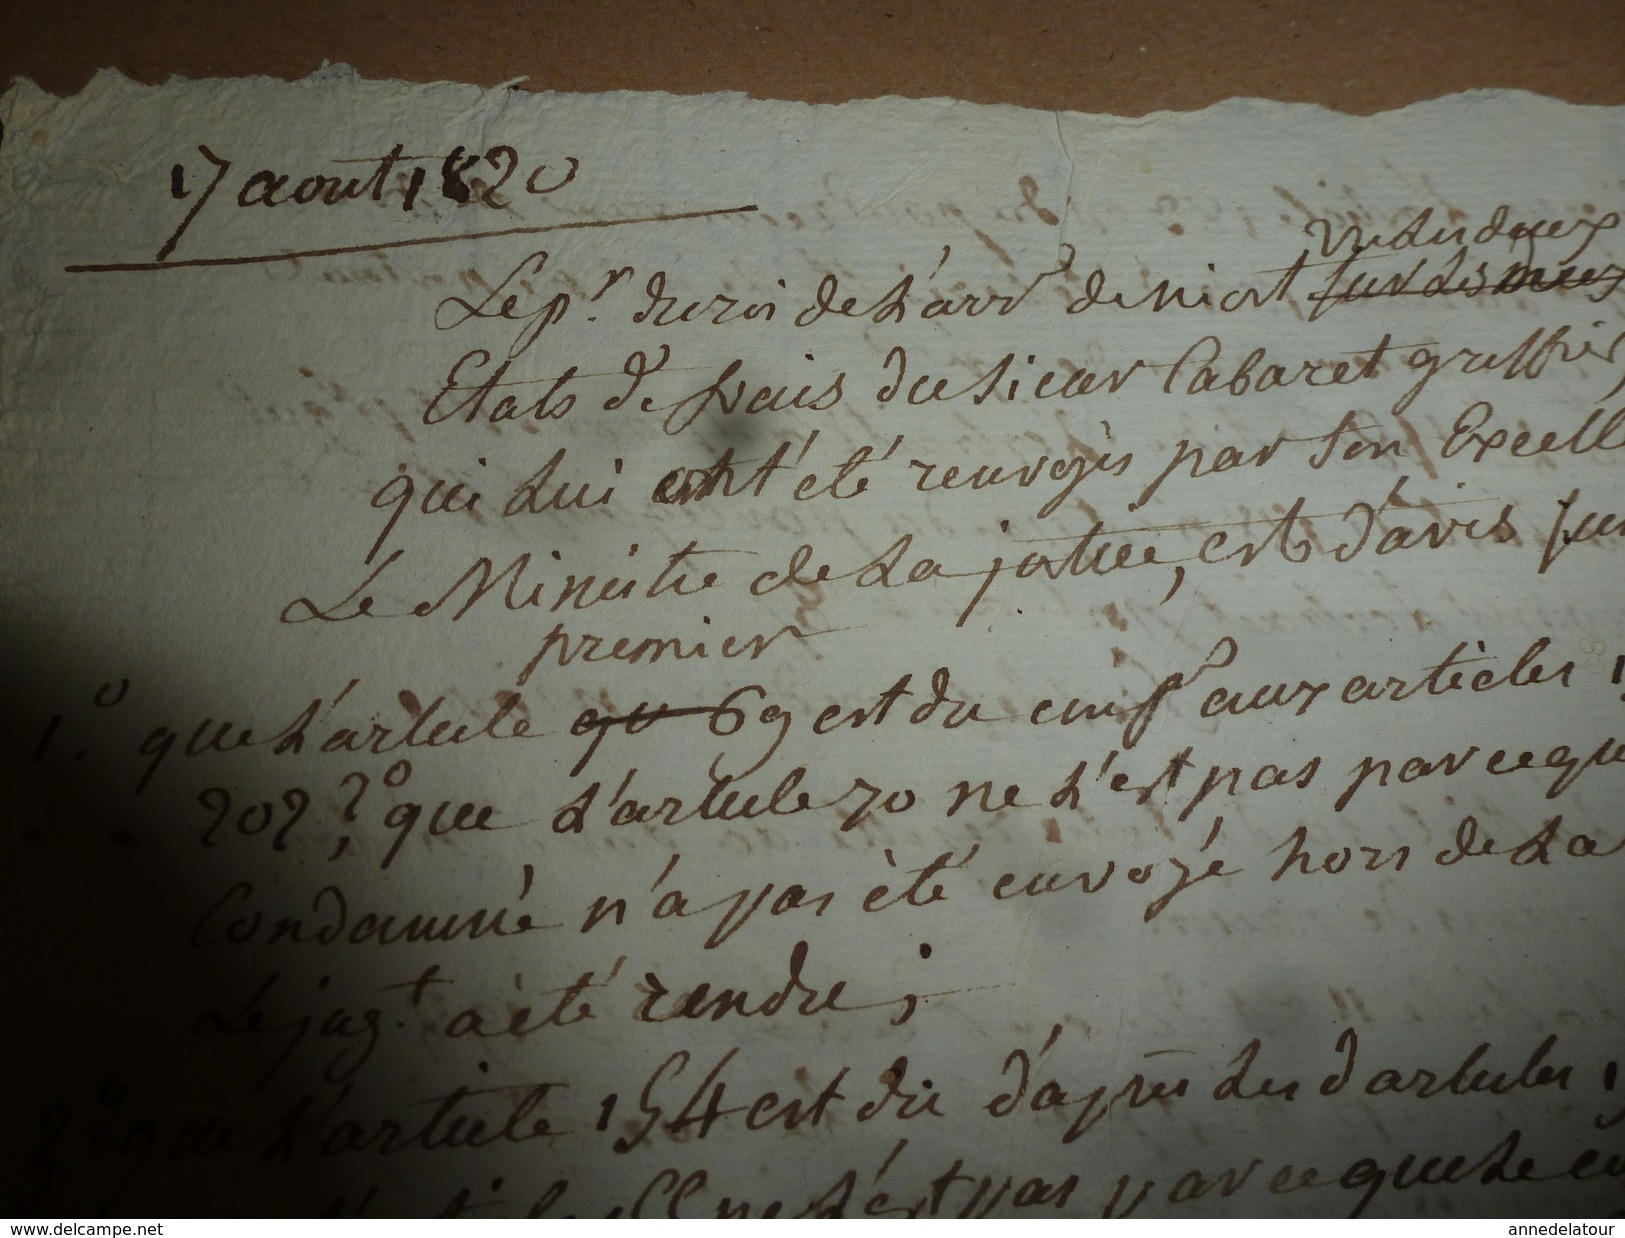 17 aout 1820
Vu les deux
Le pr. du roi de L'arrt de niort sur les deux
Etats de frais du Sieur Cabaret greffier
qui Lui ont été renvoyés par Son Excell
Le Ministre de La justice, est d'avis sur
premier
1.° que L'article qu 69 est du conf aux articles
202, 2° que L'article 70 ne L'est pas parceque
Condamné n'a pas été envoyé hors de La
Le jugt. a été rendu ;
3.° que L'article 154 est du d'après Les d articles
ne L'est pas parceque Le
Delcampe.net
annedelatour